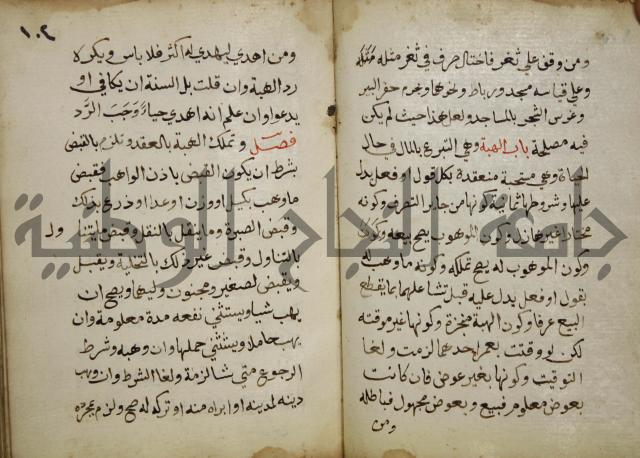 ومن وقف على ثغر فاختل صرف في ثغر مثله
وعلى قياسه مسجد ورباط ونحوهما ويحرم حفر البير
وغرس الشجر بالمساجد ولعل هذا حيث لم يكن
فيه مصلحة باب الهبة وهي التبرع بالمال في حال
الحياة وهي مستحبة منعقدة بكل قول او فعل يدل
عليها وشروطها ثمانية كونها من جايز التصرف وكونه
مختارا غير هازل وكون الموهوب يصح بيعه وكون
وكون الموهوب له يصح تمليكه وكونه ما وهب له
بقول او فعل يدل عليه قبل تشاغلهما بما يقطع
البيع عرفا وكون الهبة منجزة وكونها غير موقتة
لكن لو وقتت بعمر احدهما لزمت ولغا
التوقيت وكونها بغير عوض فان كانت
بعوض معلوم فبيع وبعوض مجهول فباطلة
ومن
١٠٢
ومن اهدى ليهدى له اكثر فلا باس ويكره
رد الهبة وان قلت بل السنة ان يكافي او
يدعو وان علم انه اهدى حياء وجب الرد
فصل وتملك الهبة بالعقد وتلزم بالقبض
بشرط ان يكون القبض باذن الواهب فقبض
ما وهب بكيل او وزن او عد او ذرع بذلك
وقبض الصبرة وما ينقل بالنقل وقبض ما يتناول
بالتناول وقبض غير ذلك بالتخلية ويقبل
ويقبض لصغير ومجنون وليهما ويصح ان
يهب شيا ويستثني نفعه مدة معلومة وان
يهب حاملا ويستثني حملها وان وهبه وشرط
الرجوع متى شا لزمت ولغا الشرط وان وهب
دينه لمدينه او ابراه منه او تركه له صح ولزم بمجرده
جامعة النجاح الوطنية